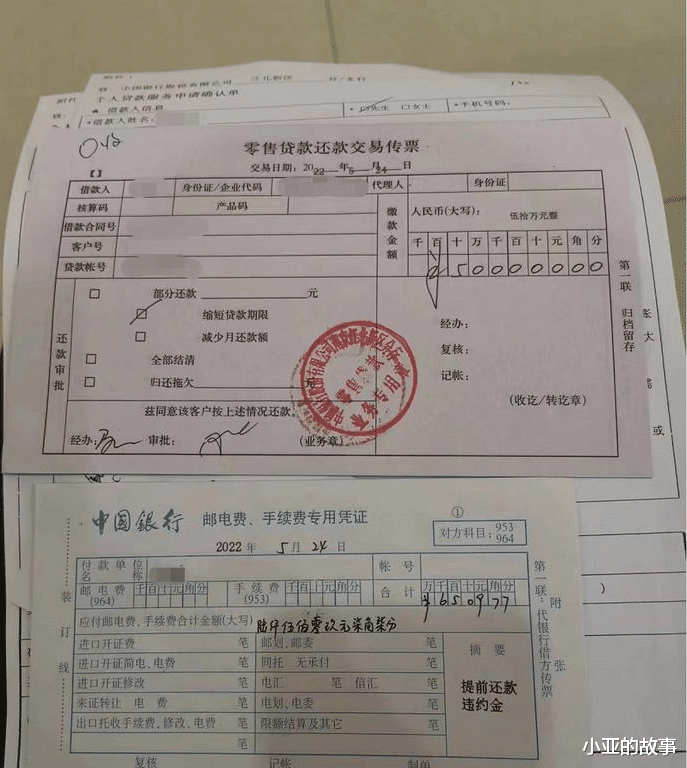 个人贷款服务申请确认单
★ 借款人信息
*借款人姓名：
☑先生 口女士
*手机号码：
零售贷款还款交易传票
交易日期：2022年5月24日
【】
借款人
身份证/企业代码
代理人
身份证
核算码
产品码
借款合同号
客户号
贷款帐号
缴款金额
人民币(大写)：
伍拾万元整
千百十万千百十元角分
¥50000000
还款审批
部分还款 元
缩短贷款期限
减少月还款额
全部结清
归还拖欠 元
兹同意该客户按上述情况还款。
经办： 审批： (业务章)
经办：
复核：
记帐：
(收讫/转讫章)
第一联 归档留存
零售贷款
业务专用章
中國銀行 邮电费、手续费专用凭证
①
对方科目：953
964
2022年 5月 24日
付款单位
名称
帐号
邮电费
(964)
千百十元角分
手续费
(953)
千百十元角分
合计
万千百十元角分
¥650977
应付邮电费、手续费合计金额(大写)
陆仟伍佰零玖元柒角柒分
进口开证费 笔
邮划、邮委 笔
进口开证简电、电费 笔
同托 无承付 笔
进口开证修改 笔
电汇 笔 信汇 笔
来证转让 电费 笔
电划、电委 笔
出口托收手续费、修改、电费 笔
限额结算及其它 笔
笔
摘要
提前还款
违约金
装订线
第一联：代银行借方传票
附 张
复核
记帐
制票
小亚的故事